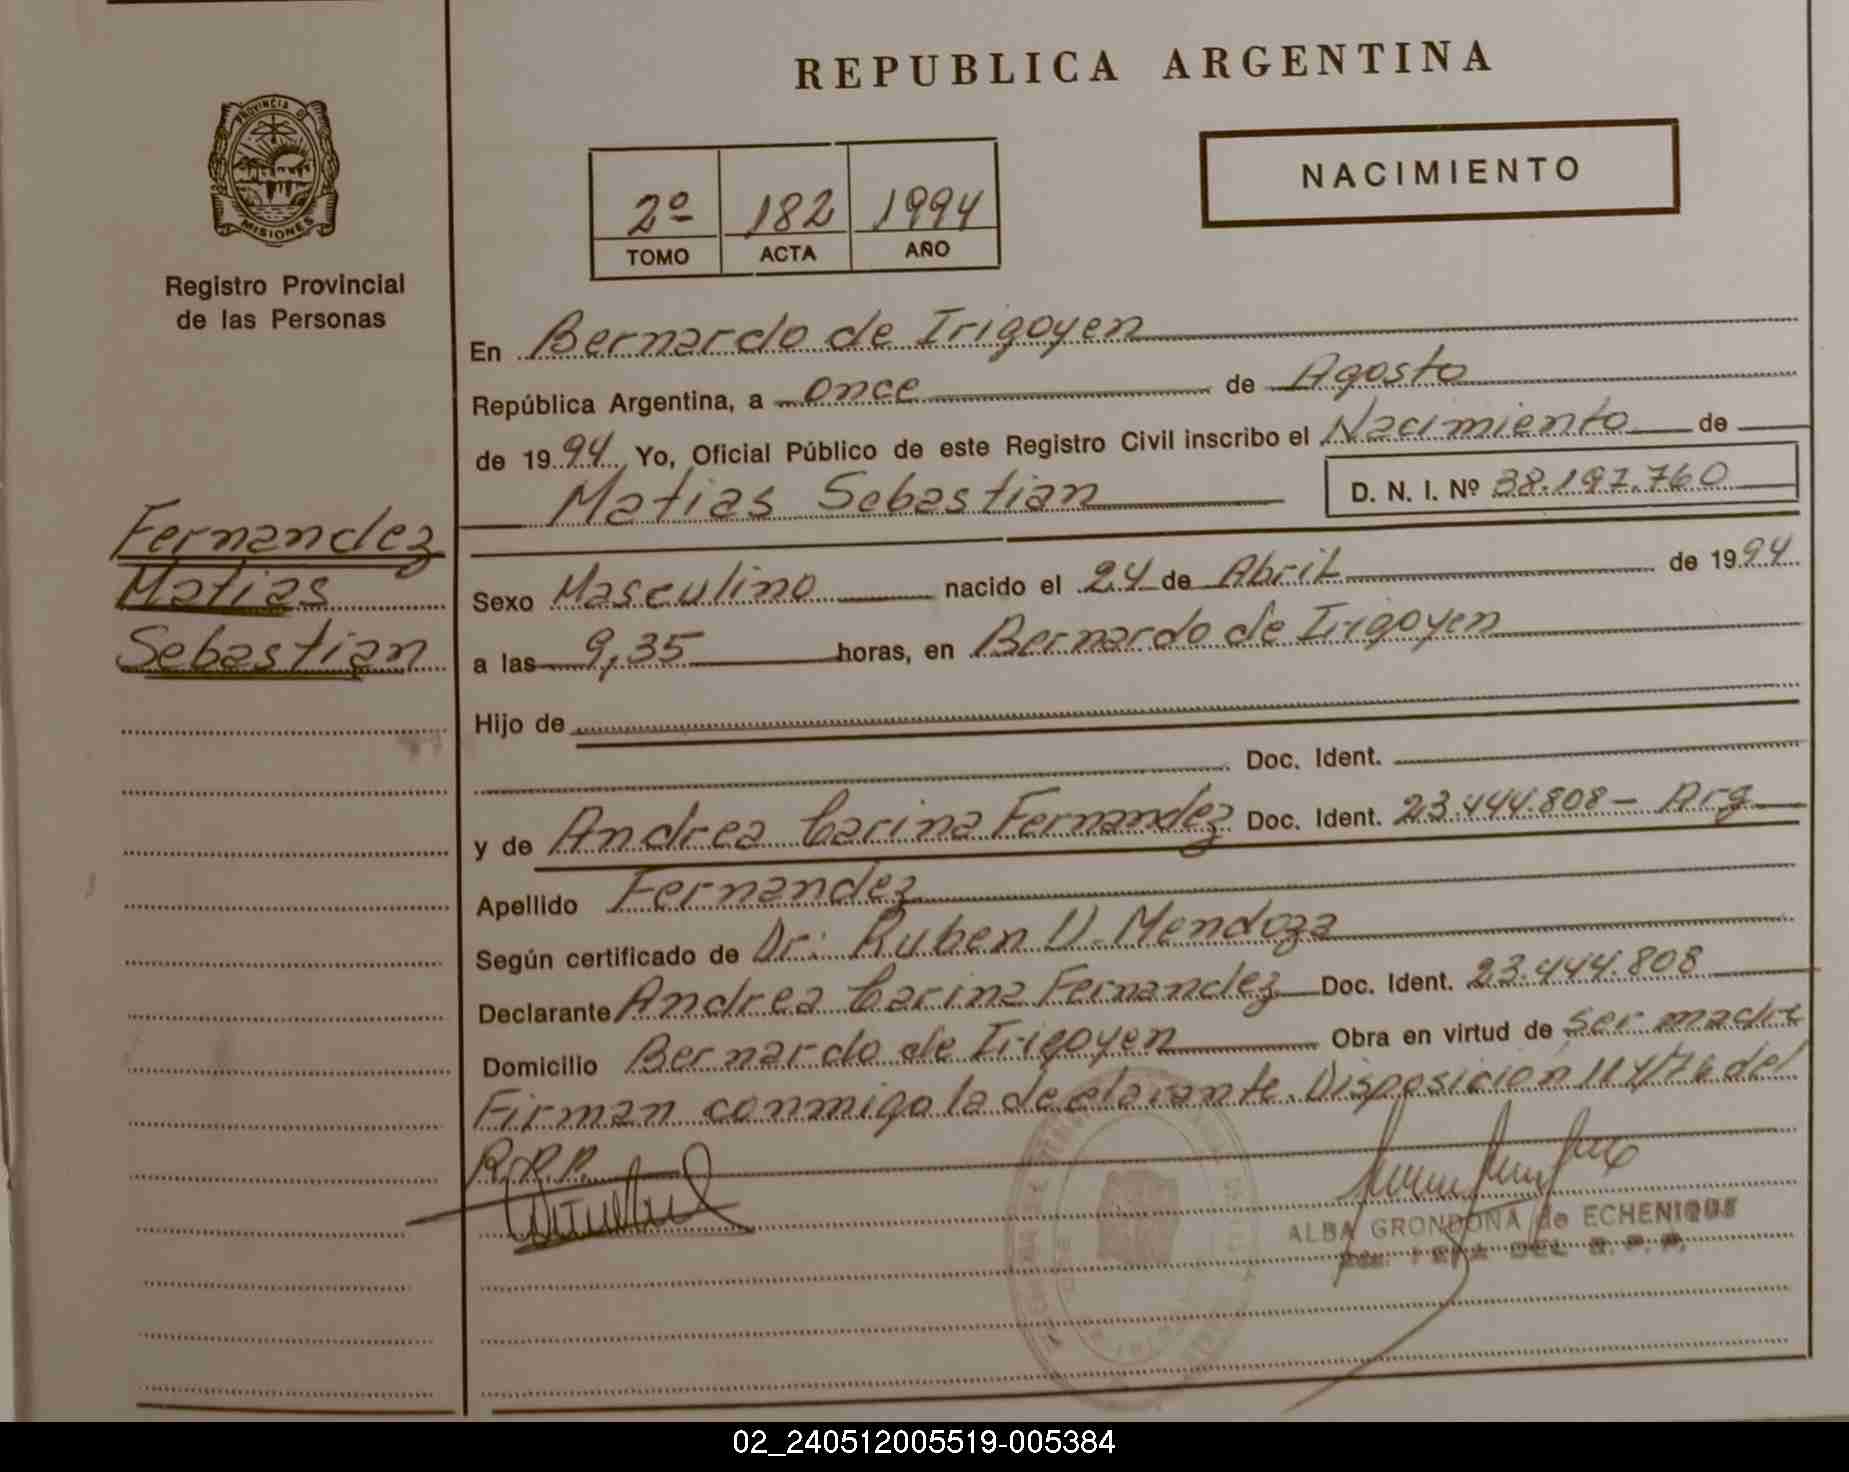 REPUBLICA ARGENTINA
PROVINCIA DE
MISIONES
Registro Provincial
de las Personas
2º 182 1994
TOMO ACTA AÑO
NACIMIENTO
En Bernardo de Irigoyen
República Argentina, a once de Agosto
de 1994 Yo, Oficial Público de este Registro Civil inscribo el Nacimiento de
Matias Sebastian D. N. I. Nº 38.197.760
Fernandez
Matias
Sebastian
Sexo Masculino nacido el 24 de Abril de 1994
a las 9,35 horas, en Bernardo de Irigoyen
Hijo de
Doc. Ident.
y de Andrea Carina Fernandez Doc. Ident. 23.444.808 - Arg
Apellido Fernandez
Según certificado de Dr: Ruben D. Mendoza
Declarante Andrea Carina Fernandez Doc. Ident. 23.444.808
Domicilio Bernardo de Irigoyen Obra en virtud de ser madre
Firman conmigo la declarante. Disposición 114/76 del
R.P.P.
ALBA GRONDONA de ECHENIQUE
DEL R. P. P.
02_240512005519-005384